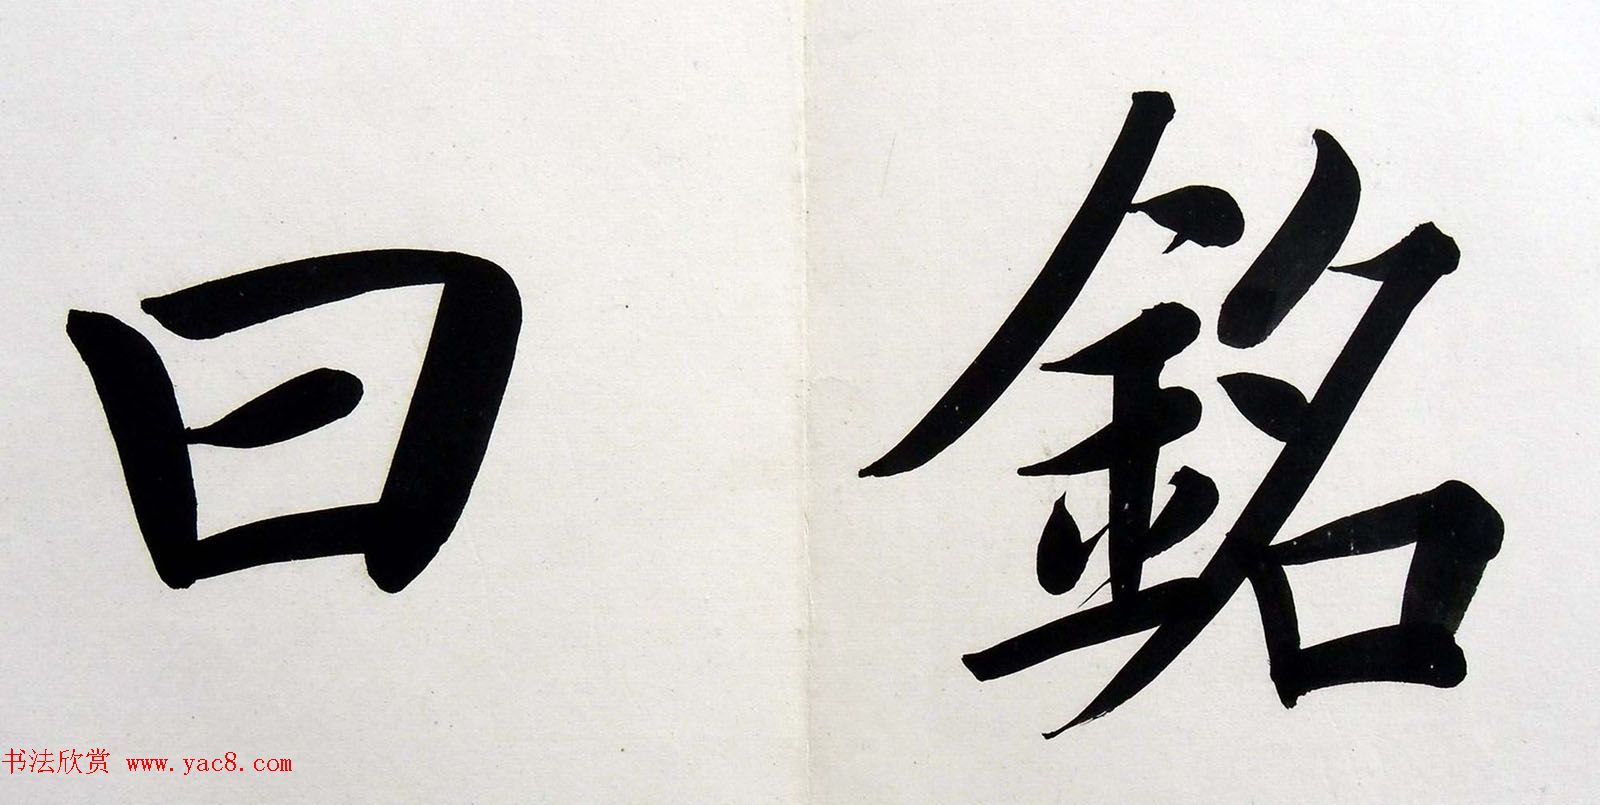 銘曰
书法欣赏 www.yac8.com